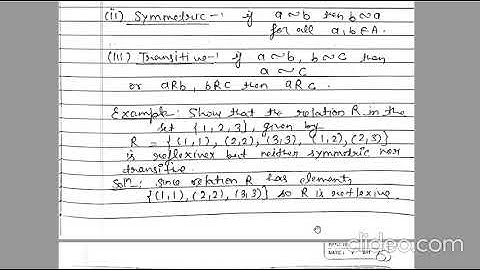 (ii) Symmetric - if a ~ b then b ~ a
for all a, b ∈ A.
(iii) Transitive - if a ~ b, b ~ c then
a ~ c
or aRb, bRc then aRc.
Example: Show that the relation R in the
set {1, 2, 3}, given by
R = {(1,1), (2,2), (3,3), (1,2), (2,3)}
is reflexive but neither symmetric nor
transitive.
Solⁿ: since relation R has elements
{(1,1), (2,2), (3,3)} so R is reflexive
clideo.com